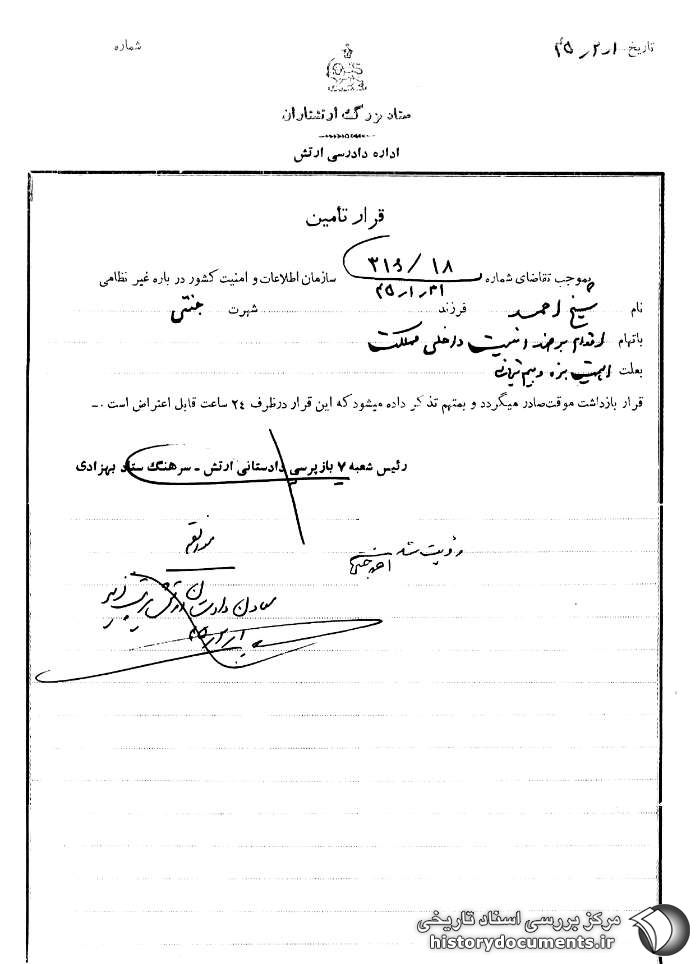 تاریخ ۱ر۲ر۴۵
شماره
ستاد بزرگ ارتشتاران
اداره دادرسی ارتش
قرار تأمین
بموجب تقاضای شماره ۳۱۶/۱۸ سازمان اطلاعات و امنیت کشور در باره غیر نظامی
۳۱ر۱ر۴۵
نام شیخ احمد فرزند شهرت جنتی
باتهام اقدام بر ضد امنیت داخلی مملکت
بعلت اهمیت بزه و بیم تبانی
قرار بازداشت موقت صادر میگردد و بمتهم تذکر داده میشود که این قرار در ظرف ۲۴ ساعت قابل اعتراض است -۰
رئیس شعبه ۷ بازپرسی دادستانی ارتش - سرهنگ ستاد بهزادی
موافقم
رؤیت شد احمد جنتی
معاون دادستان ارتش سرتیپ
۱ر۲ر۴۵
مرکز بررسی اسناد تاریخی
historydocuments.ir